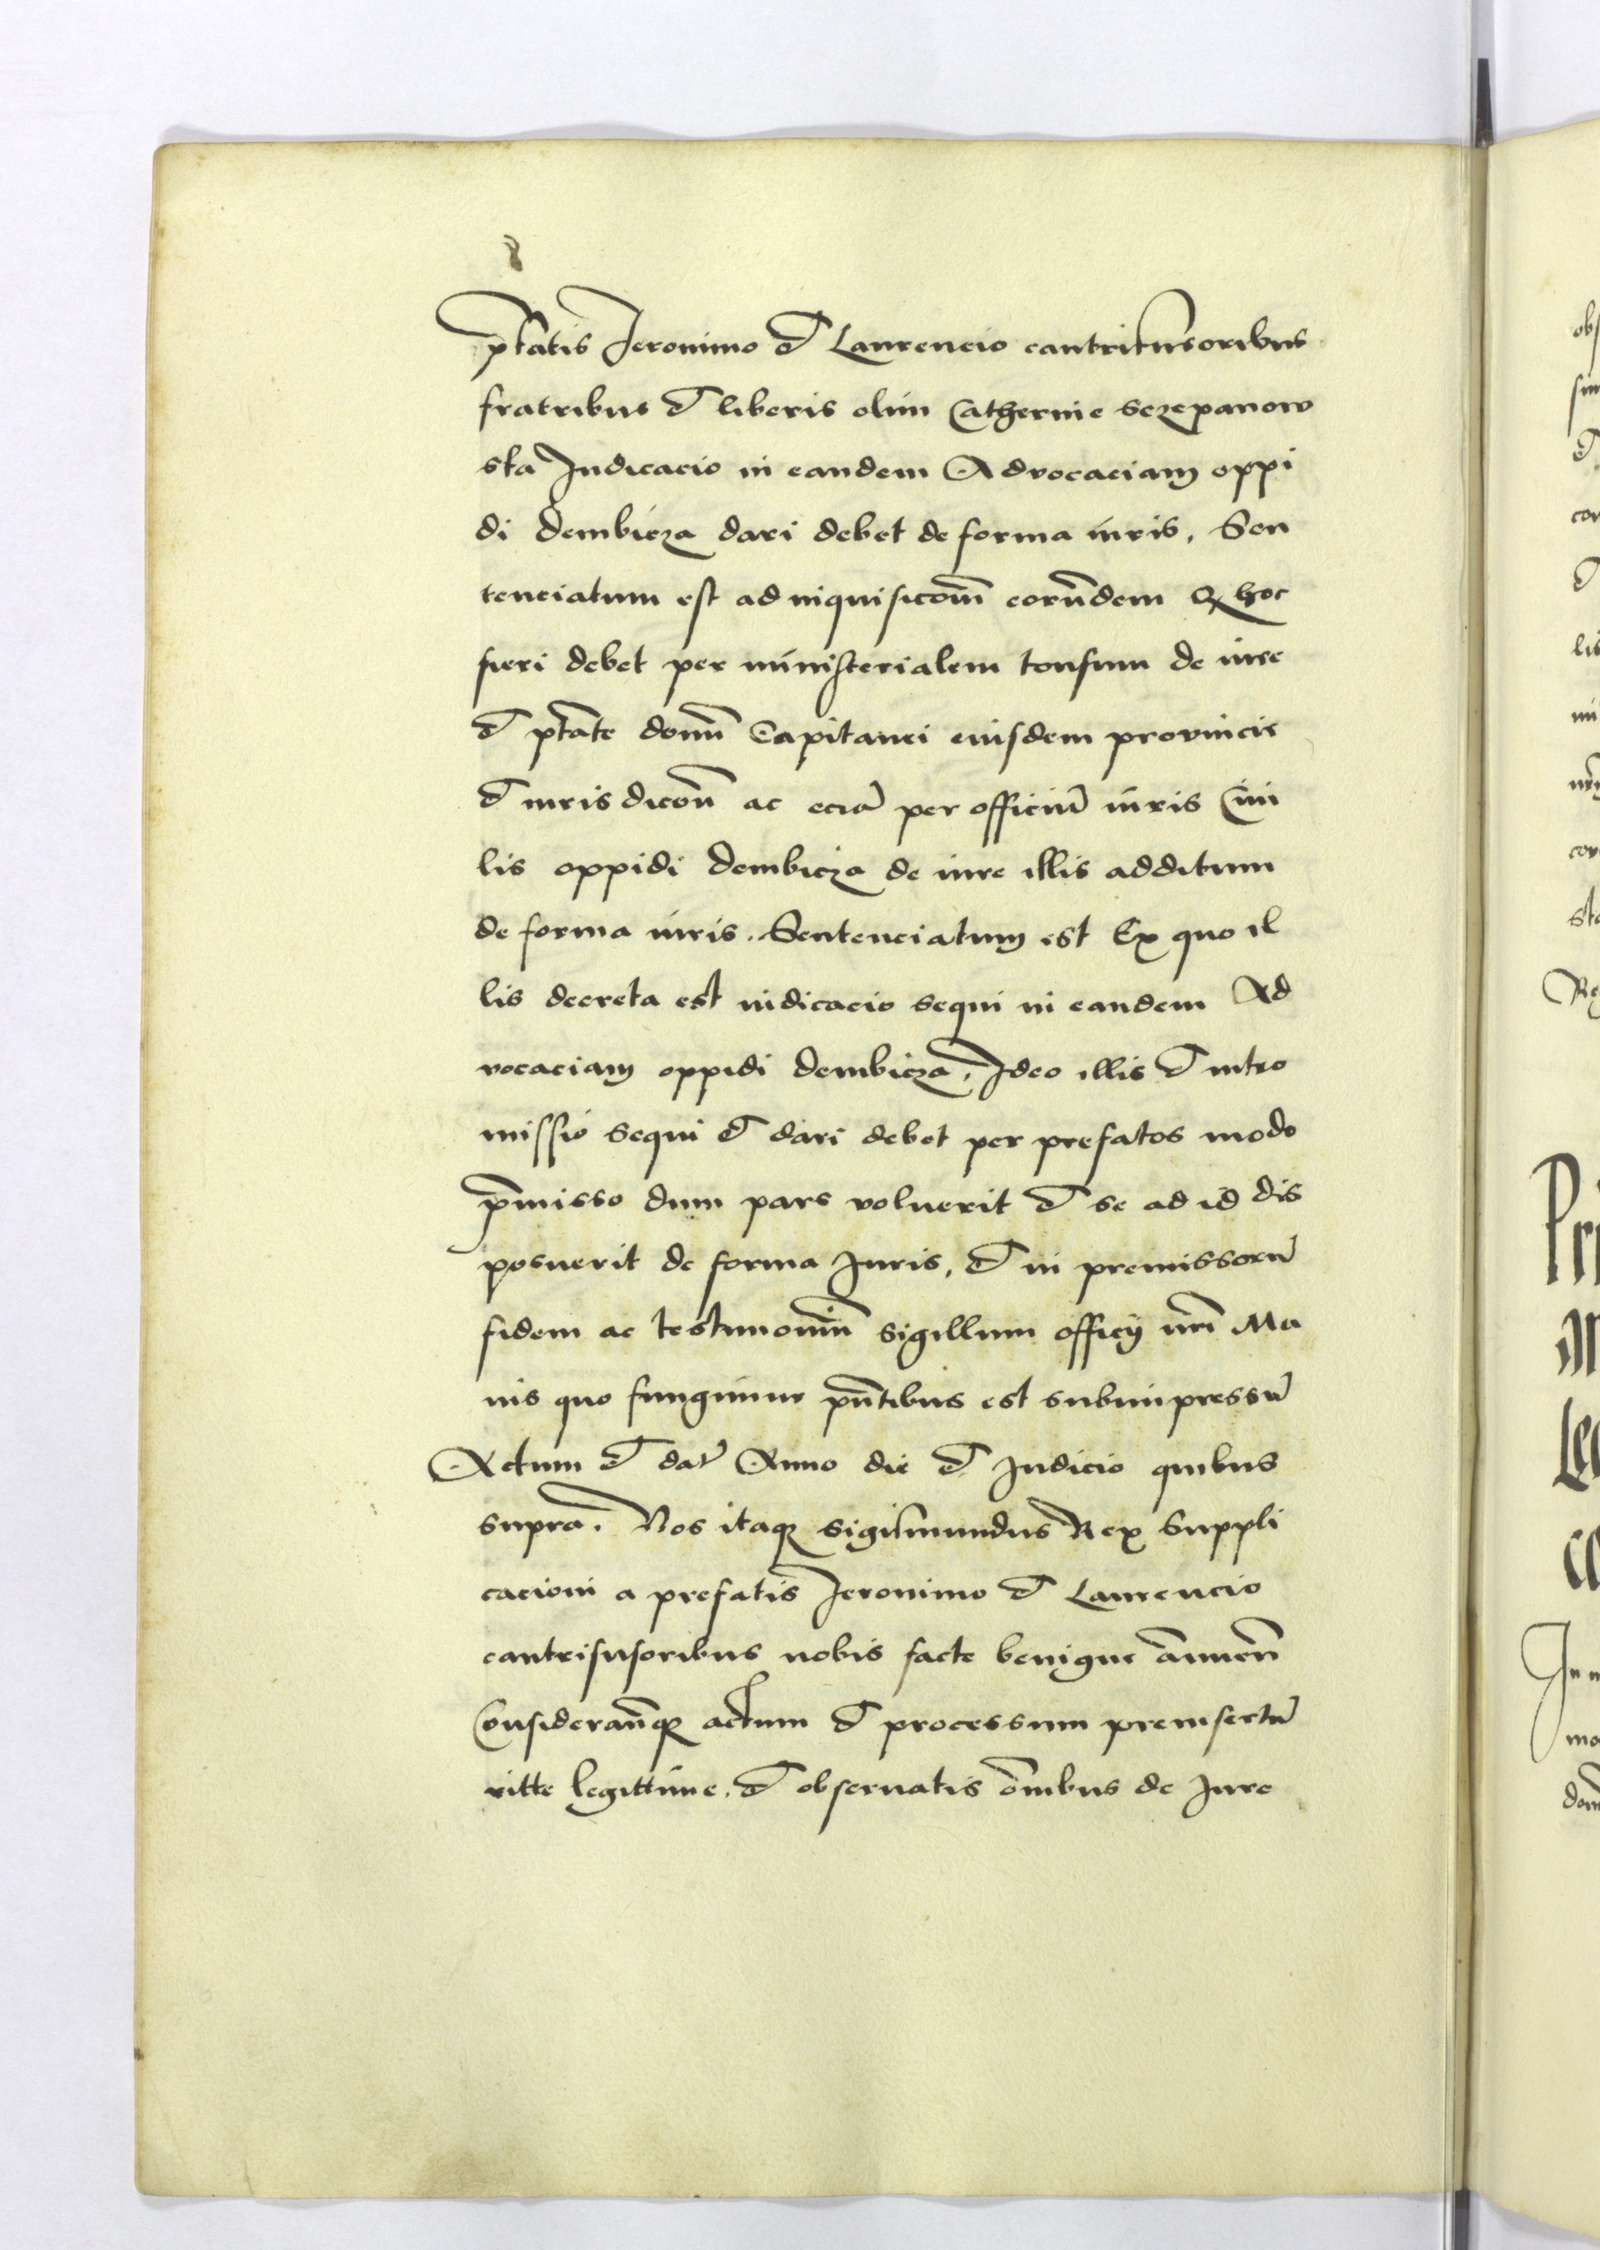 p̃fatis Jeronimo et Laurencio cantrifusoribus
fratribus et liberis olim Catherine Sczepanow
ska Judicacio in eandem Advocaciam oppi
di Dembicza dari debet de forma iuris, Sen
tenciatum est ad inquisicom̃ eorũdem Q hoc
fieri debet per ministerialem tonsum de iure
et ptãte domĩ Capitanei eiusdem provincie
et iurisdicoñ ac eciã per officiũ iuris Civi
lis oppidi Dembicza de iure illis additum
de forma iuris. Sentenciatum est Ex quo il
lis decreta est iudicacio sequi in eandem Ad
vocaciam oppidi Dembicza, Ideo illis et intro
missio sequi et dari debet per prefatos modo
p̃misso dum pars voluerit et se ad id dis
posuerit de forma Juris, et in premissorũ
fidem ac testimoniũ sigillum officij nr̃i Ma
ius quo fungimur pñtibus est subimpressũ
Actum et dat̃ Anno die et Judicio quibus
supra. Nos itaq Sigismundus Rex Suppli
cacioni a prefatis Jeronimo et Laurencio
cantrifusoribus nobis facte benigne ãnueñ
Considerañq actum et processum preinsertũ
ritte legittime. et observatis õnibus de Jure